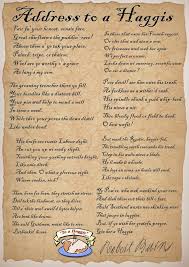 Address to a Haggis
Fair fa' your honest, sonsie face,
Great chieftain o the puddin'-race!
Aboon them a' ye tak your place,
Painch, tripe, or thairm:
Weel are ye wordy o' a grace
As lang's my arm.
The groaning trencher there ye fill,
Your hurdies like a distant hill,
Your pin wad help to mend a mill
In time o need,
While thro your pores the dews distil
Like amber bead.
His knife see rustic Labour dight,
An cut you up wi ready slight,
Trenching your gushing entrails bright,
Like onie ditch;
And then, O what a glorious sight,
Warm-reekin, rich!
Then, horn for horn, they stretch an strive:
Deil tak the hindmost, on they drive,
Till a' their weel-swall'd kytes belyve
Are bent like drums;
The auld Guidman, maist like to rive,
'Bethankit' hums.
Is there that owre his French ragout,
Or olio that wad staw a sow,
Or fricassee wad mak her spew
Wi perfect scunner,
Looks down wi sneering, scornfu view
On sic a dinner?
Poor devil! see him owre his trash,
As feckless as a wither'd rash,
His spindle shank a guid whip-lash,
His nieve a nit;
Thro bloody flood or field to dash,
O how unfit!
But mark the Rustic, haggis-fed,
The trembling earth resounds his tread,
Clap in his walie nieve a blade,
He'll make it whissle;
An legs an arms, an heads will sned,
Like taps o thrissle.
Ye Pow'rs, wha mak mankind your care,
And dish them out their bill o fare,
Auld Scotland wants nae skinking ware
That jaups in luggies:
But, if ye wish her gratefu prayer,
Gie her a Haggis
To a Haggis
Robert Burns